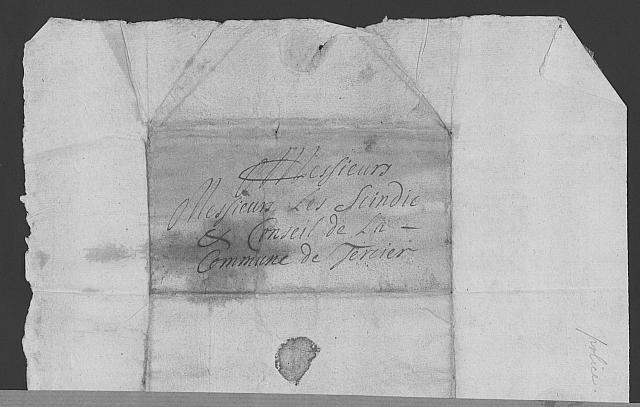 Messieurs
Messieurs Les Scindic
& Conseil de La -
Commune de Tercier
police